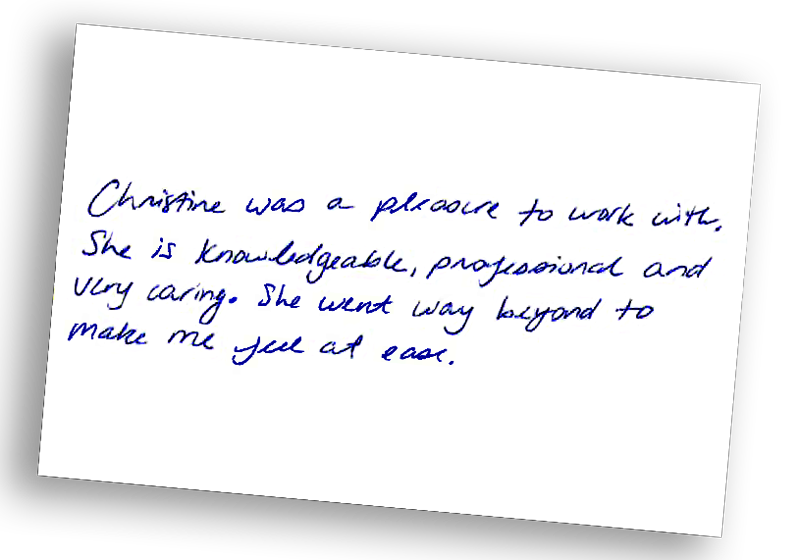 Christine was a pleasure to work with.
She is knowledgeable, professional and
very caring. She went way beyond to
make me feel at ease.